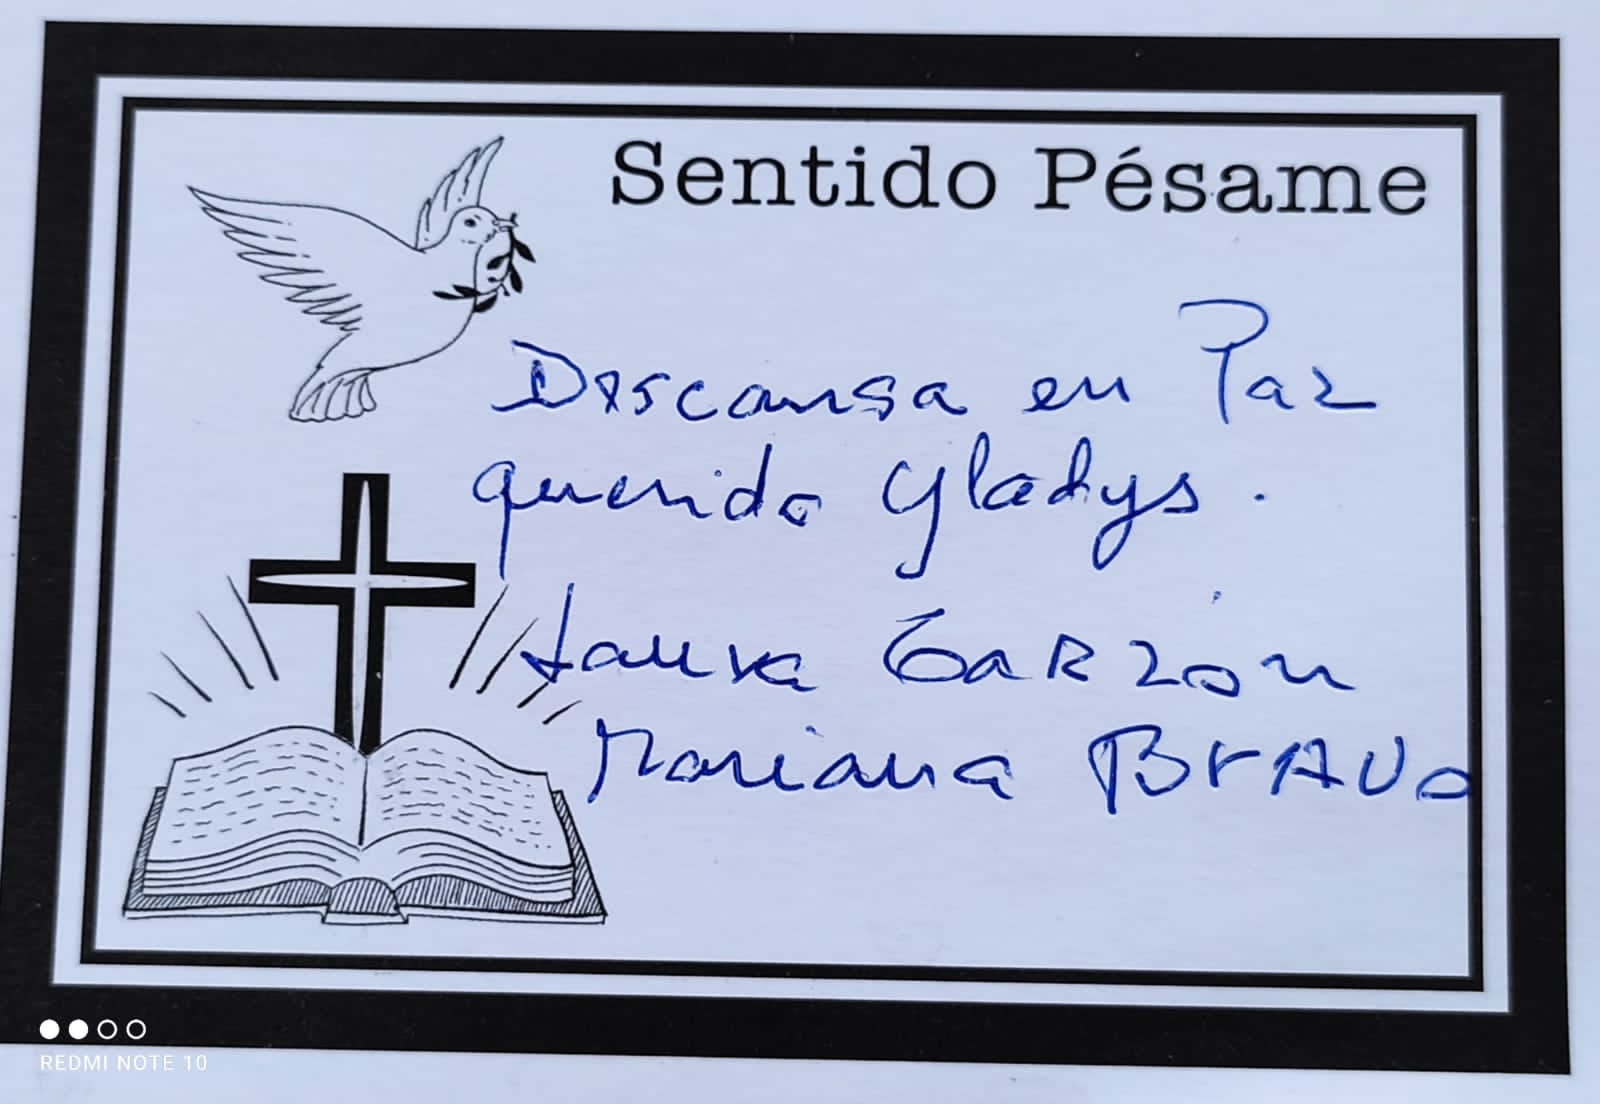 Sentido Pésame
Descansa en Paz
querida Gladys.
Laura Garzón
Mariana BrAVo
REDMI NOTE 10